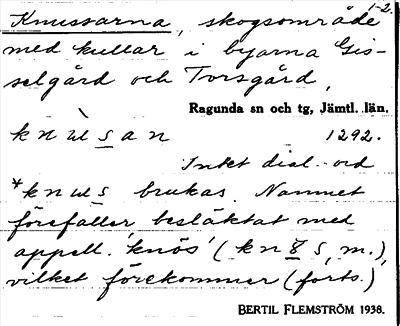 1-2.
Knussarna, skogsområde
med kullar i byarna Gis-
selgård och Torsgård,
Ragunda sn och tg, Jämtl. län.
knùsan 1292.
Intet dial. ord
*knus brukas. Namnet
förefaller besläktat med
appell. 'knös' (kn s, m.),
vilket förekommer (forts.)
BERTIL FLEMSTRÖM 1938.